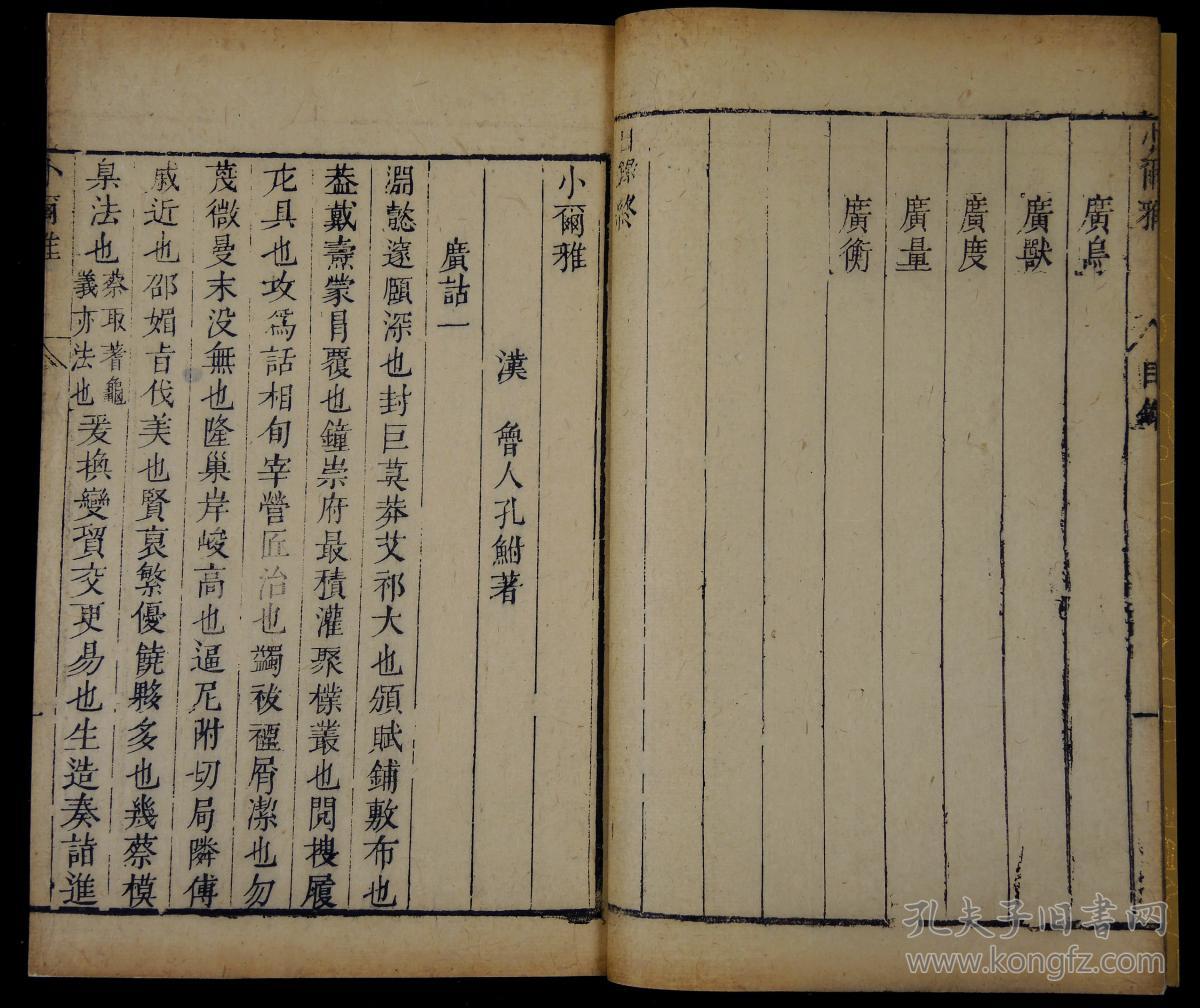 小爾雅
目錄
一
廣鳥
廣獸
廣度
廣量
廣衡
目錄終
小爾雅
漢 魯人孔鮒著
廣詁一
淵懿邃賾深也封巨莫莽艾祁大也頒賦鋪敷布也
葢戴燾蒙冐覆也鐘崇府最積灌聚樸叢也閱搜履
庀具也攻爲話相旬宰營匠治也蠲祓禋屑潔也勿
蔑微曼末没無也隆巢岸峻高也逼尼附切局隣傅
戚近也邵媚旨伐美也賢裒繁優饒夥多也幾蔡模
臬法也蔡取蓍龜
義亦法也爰換變貿交更易也生造奏詣進
小爾雅
一
孔夫子旧书网
www.kongfz.com